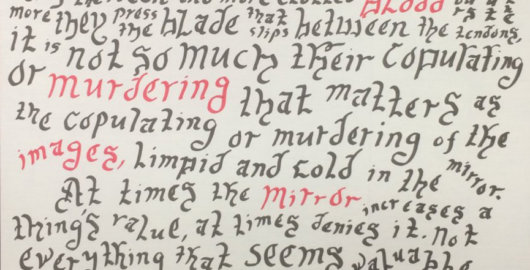 blood
more they press the blade that slips between the tendons,
it is not so much their copulating
or murdering that matters as
the copulating or murdering of the
images, limpid and cold in the mirror.
At times the mirror increases a
thing's value, at times denies it. Not
everything that seems valuable